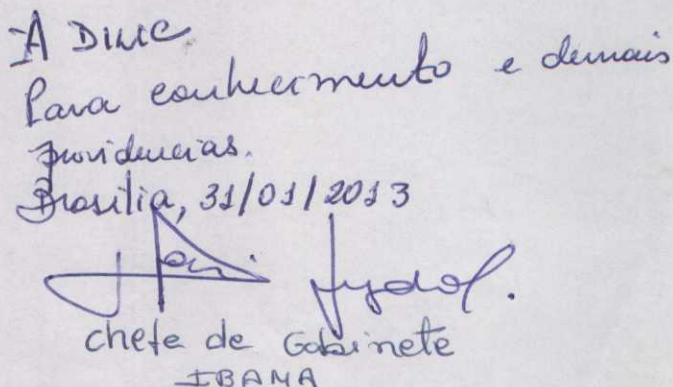 À DILIC
Para conhecimento e demais
providencias.
Brasília, 31/01/2013
chefe de Gabinete
IBAMA